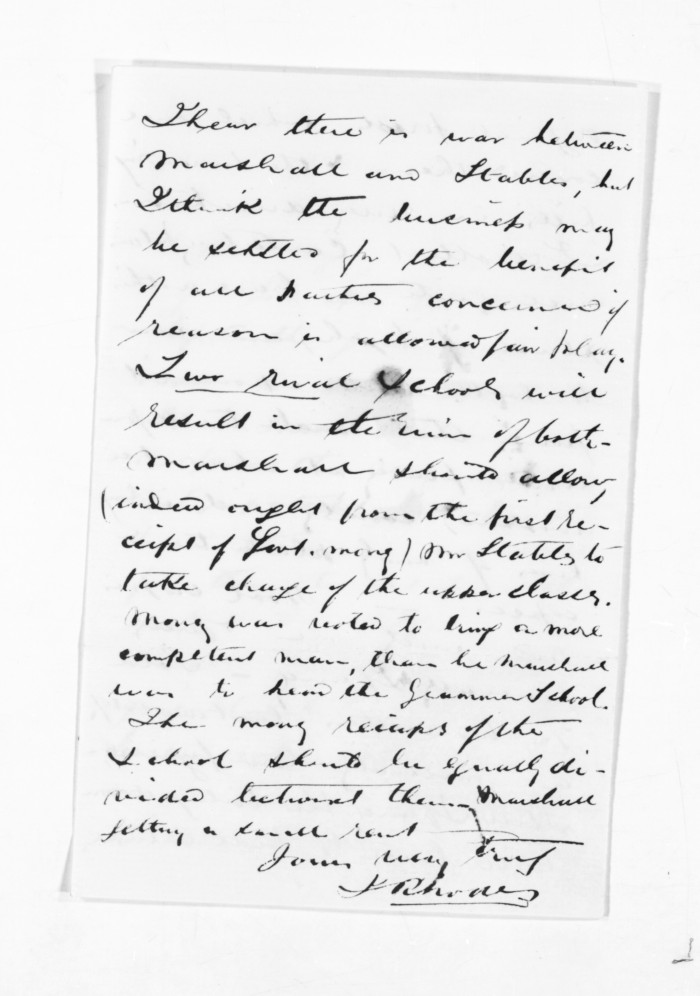 I hear there is war between
Marshall and Stables, but
I think the business may
be settled for the benefit
of all Parties concerned if
reason is allowed fair play.
Two rival Schools will
result in the ruin of both -
Marshall should allow,
(indeed ought from the first re-
ceipt of Govt. money) Mr Stables to
take charge of the upper classes.
Money was voted to bring a more
competent man, than he Marshall
was to head the Grammar School.
The money receipts of the
School should be equally di-
vided betwixt them Marshall
getting a small rent
Yours very truly
J Rhodes